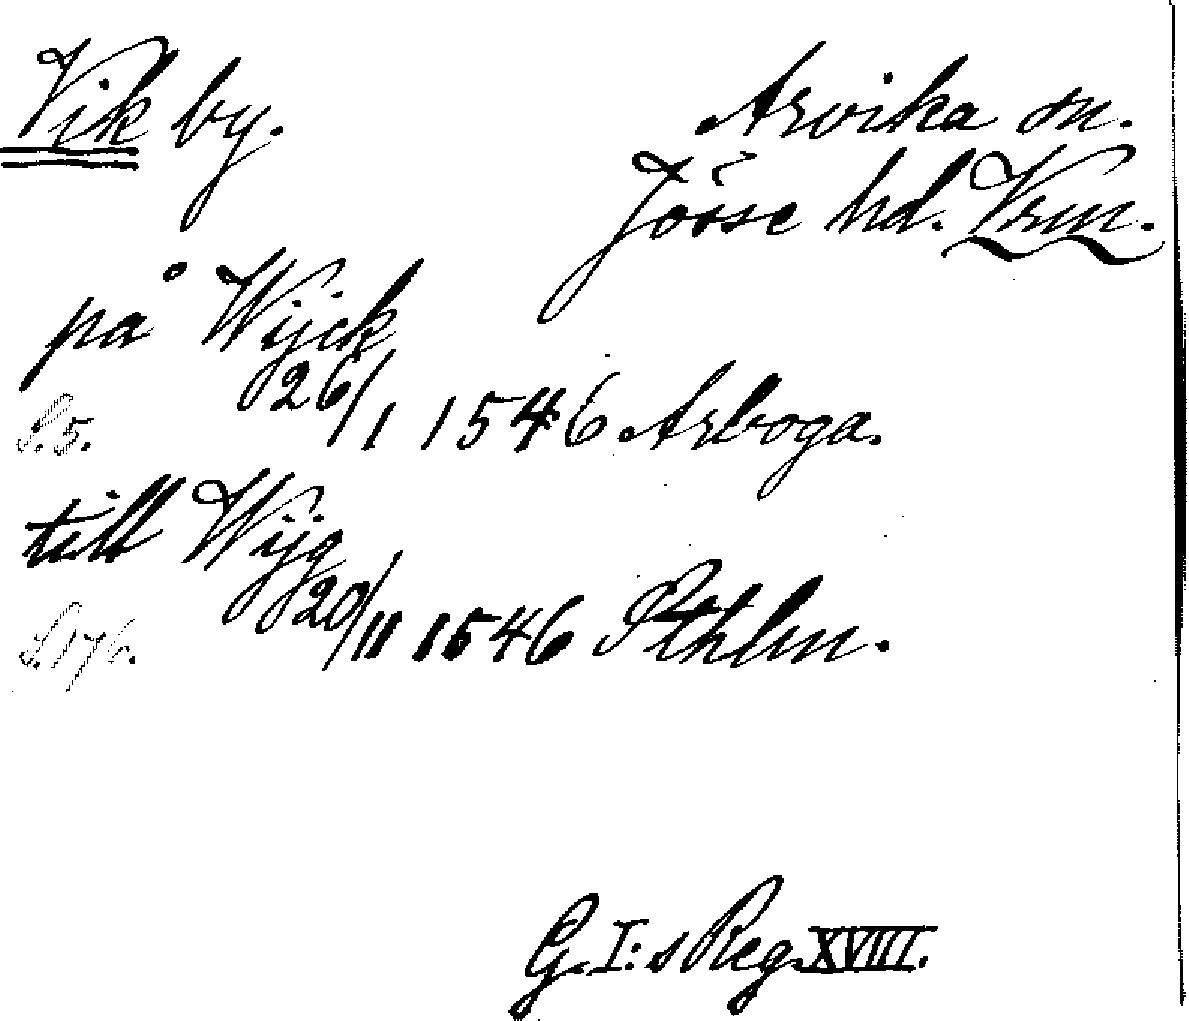 Vik by.
Arvika sn.
Jösse hd. Vrm.
på Wijck
S. 5. 26/1 1546 Arboga.
till Wijg
S. 176. 20/11 1546 Sthlm.
G. I:s Reg. XVIII.